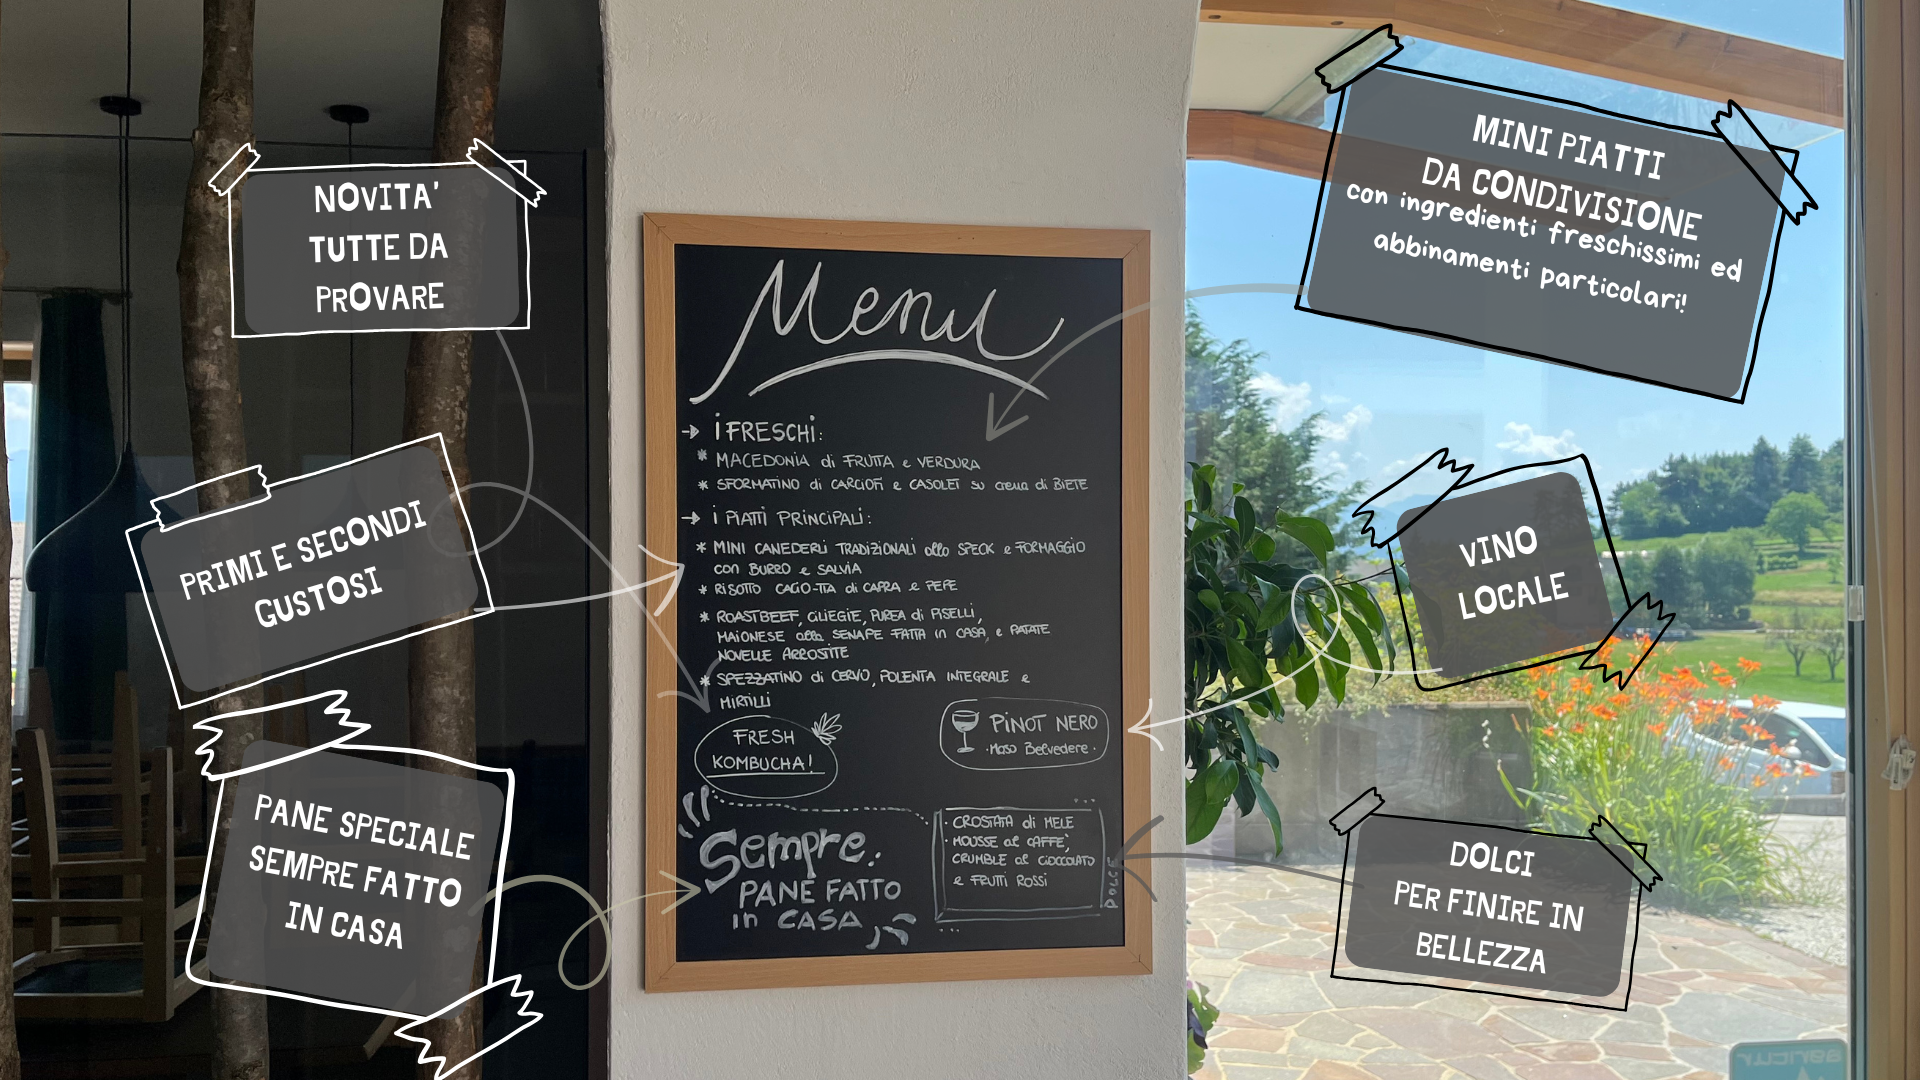 NOVITA'
TUTTE DA
PROVARE
PRIMI E SECONDI
GUSTOSI
PANE SPECIALE
SEMPRE FATTO
IN CASA
Menu
→ I FRESCHI:
* MACEDONIA di FRUTTA e VERDURA
* SFORMATINO di CARCIOFI e CASOLET su crema di BIETE
→ I PIATTI PRINCIPALI:
* MINI CANEDERLI TRADIZIONALI allo SPECK e FORMAGGIO
con BURRO e SALVIA
* RISOTTO CACIO-TTA di CAPRA e PEPE
* ROASTBEEF, CILIEGIE, PUREA di PISELLI,
MAIONESE alla SENAPE FATTA in CASA, e PATATE
NOVELLE ARROSTITE
* SPEZZATINO di CERVO, POLENTA INTEGRALE e
MIRTILLI
FRESH
KOMBUCHA!
PINOT NERO
·Maso Belvedere·
Sempre:
PANE FATTO
in CASA
· CROSTATA di MELE
· MOUSSE al CAFFE',
CRUMBLE al CIOCCOLATO
e FRUTTI ROSSI
DOLCE
MINI PIATTI
DA CONDIVISIONE
con ingredienti freschissimi ed
abbinamenti particolari!
VINO
LOCALE
DOLCI
PER FINIRE IN
BELLEZZA